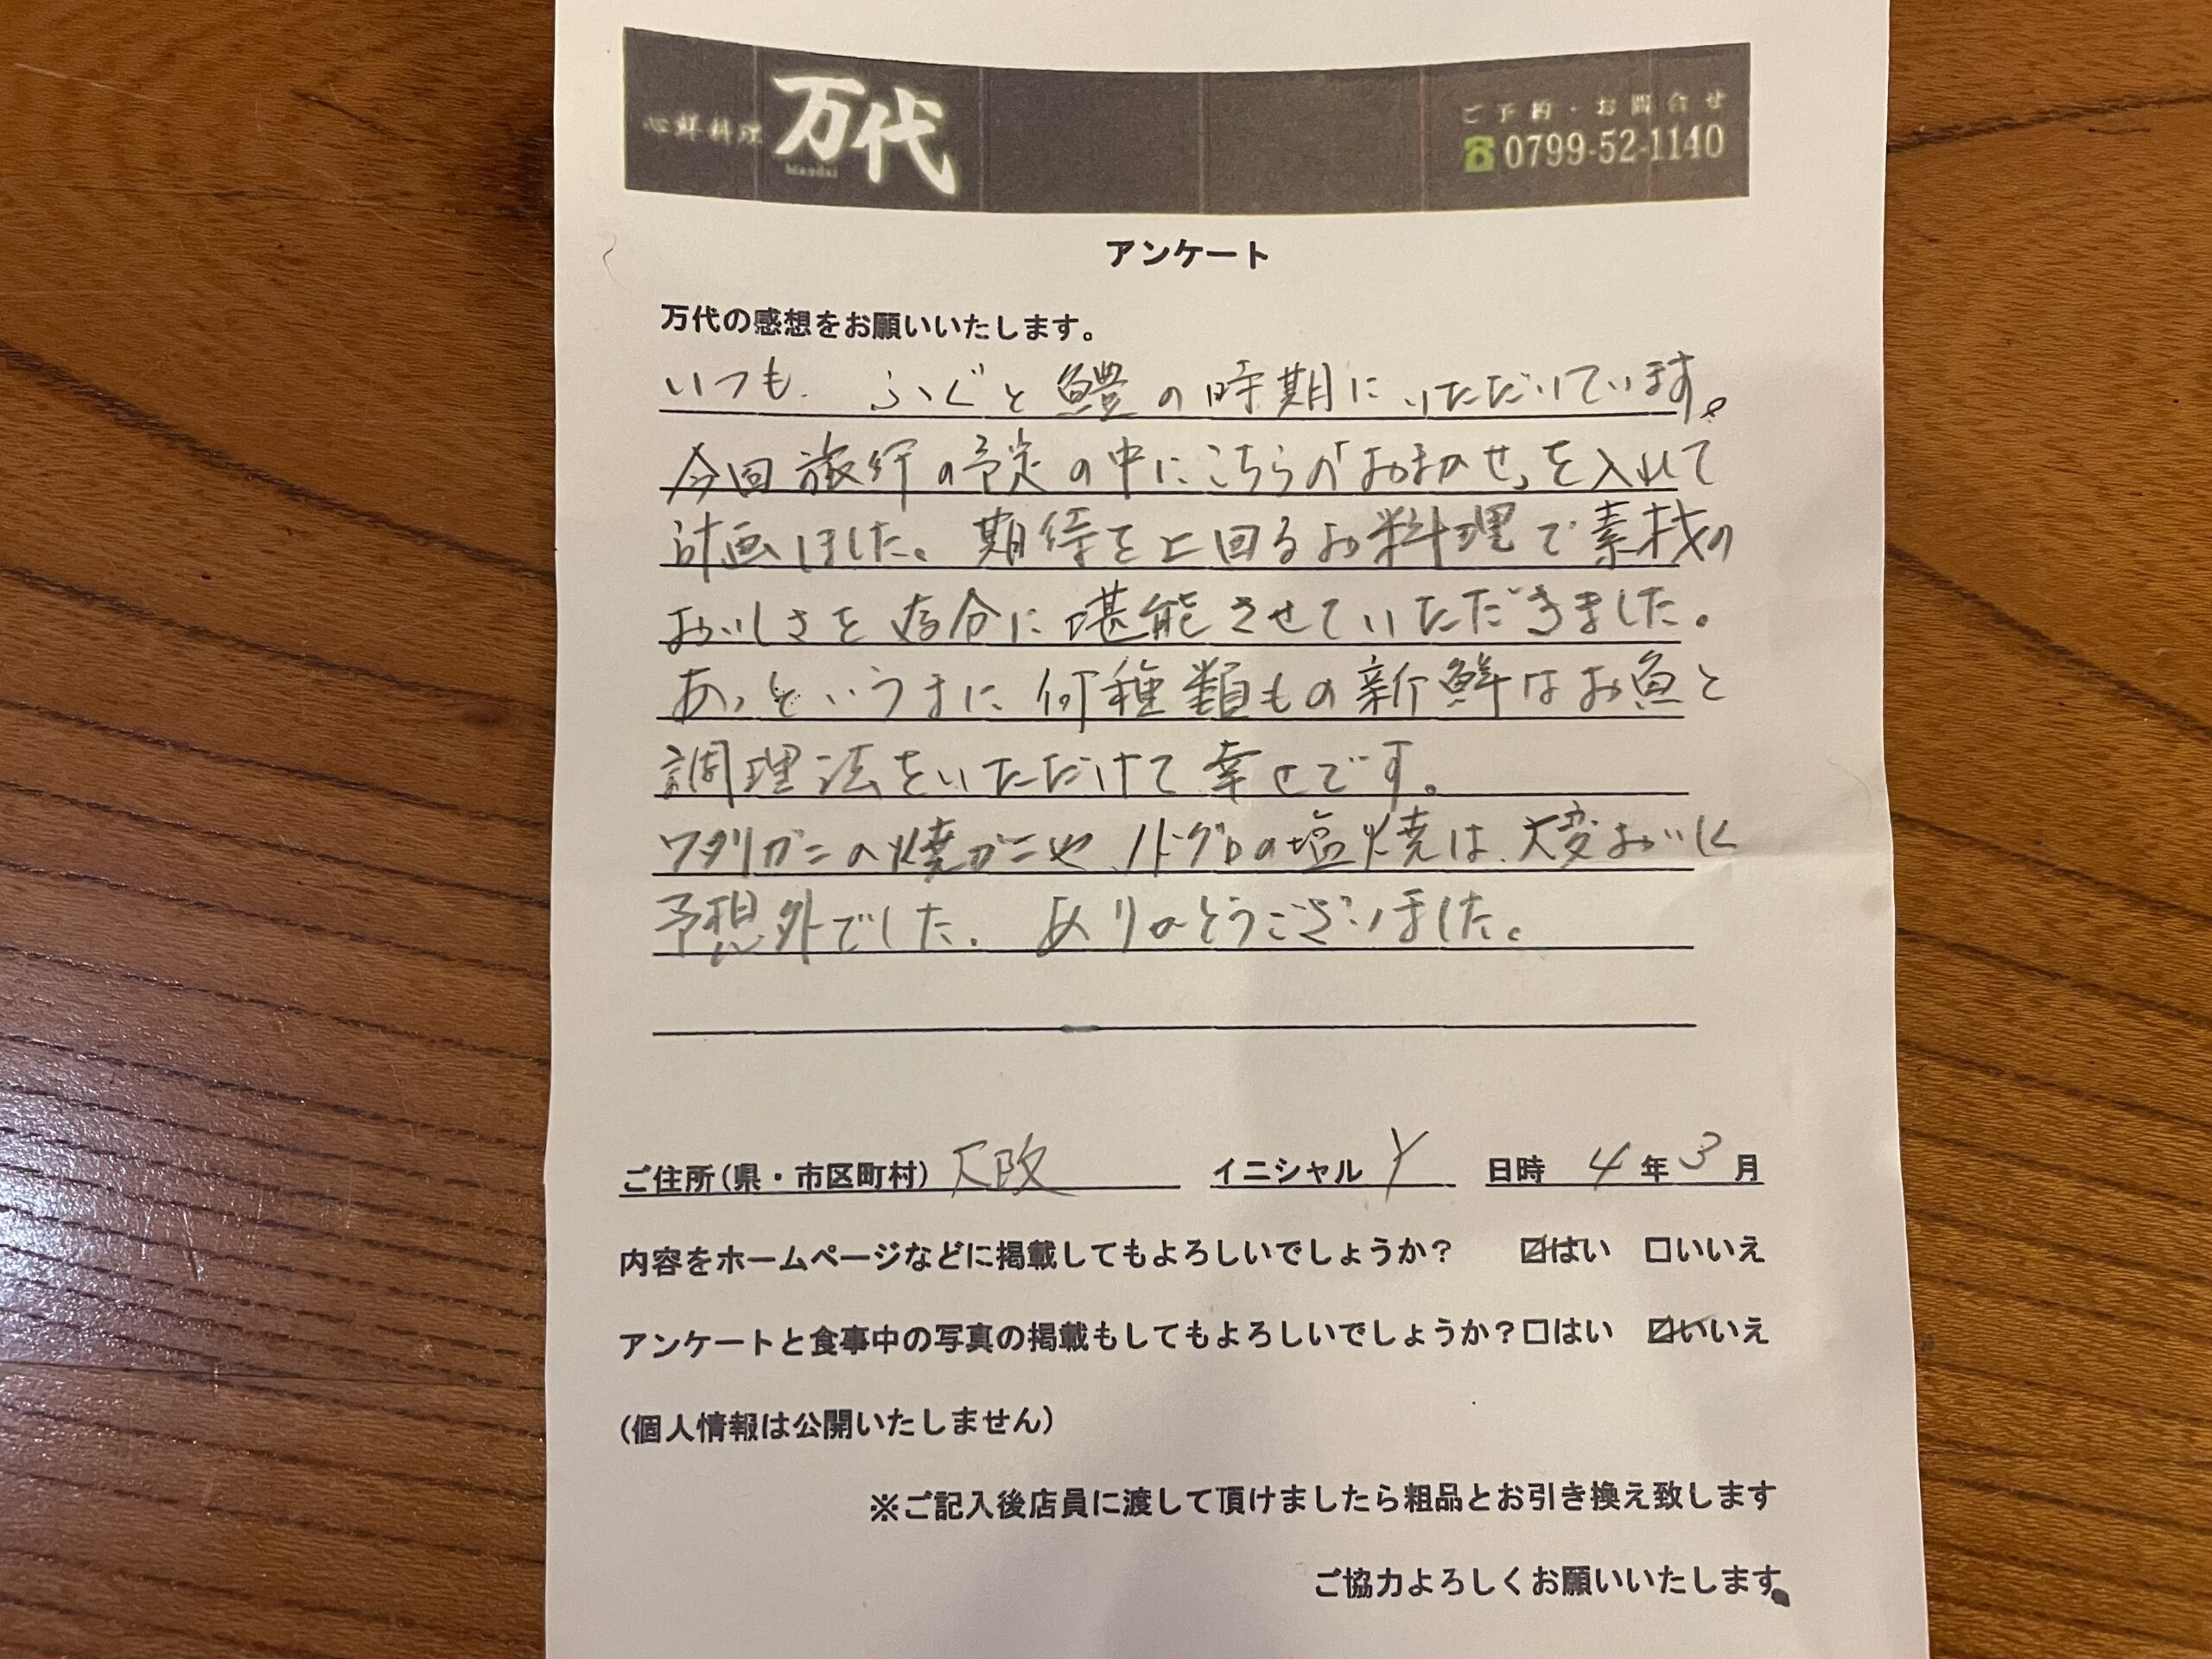 心鮮料理 万代
Mandai
ご予約・お問合せ
☎0799-52-1140
アンケート
万代の感想をお願いいたします。
いつも、ふぐと鱧の時期にいただいています。
今回旅行の予定の中にこちらの「おまかせ」を入れて
計画しました。期待を上回るお料理で素材の
おいしさを存分に堪能させていただきました。
あっというまに何種類もの新鮮なお魚と
調理法をいただけて幸せです。
ワタリガニの焼ガニや、ノドグロの塩焼は、大変おいしく
予想外でした。ありがとうございました。
ご住所(県・市区町村) 大阪 イニシャル Y 日時 4年3月
内容をホームページなどに掲載してもよろしいでしょうか? ☑はい □いいえ
アンケートと食事中の写真の掲載もしてもよろしいでしょうか?□はい ☑いいえ
(個人情報は公開いたしません)
※ご記入後店員に渡して頂けましたら粗品とお引き換え致します
ご協力よろしくお願いいたします。